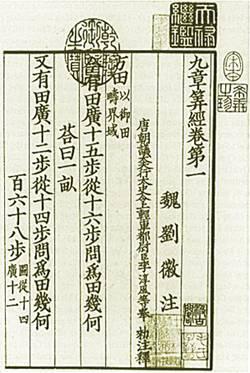 天祿繼鑑
九章筭經卷第一
魏劉徽注
唐朝議大夫行太史令上輕車都尉臣李淳風等奉 勑注釋
方田 以御田
疇界域
今有田廣十五步從十六步問爲田幾何
荅曰一畝
又有田廣十二步從十四步問爲田幾何
百六十八步 圖從十四
廣十二